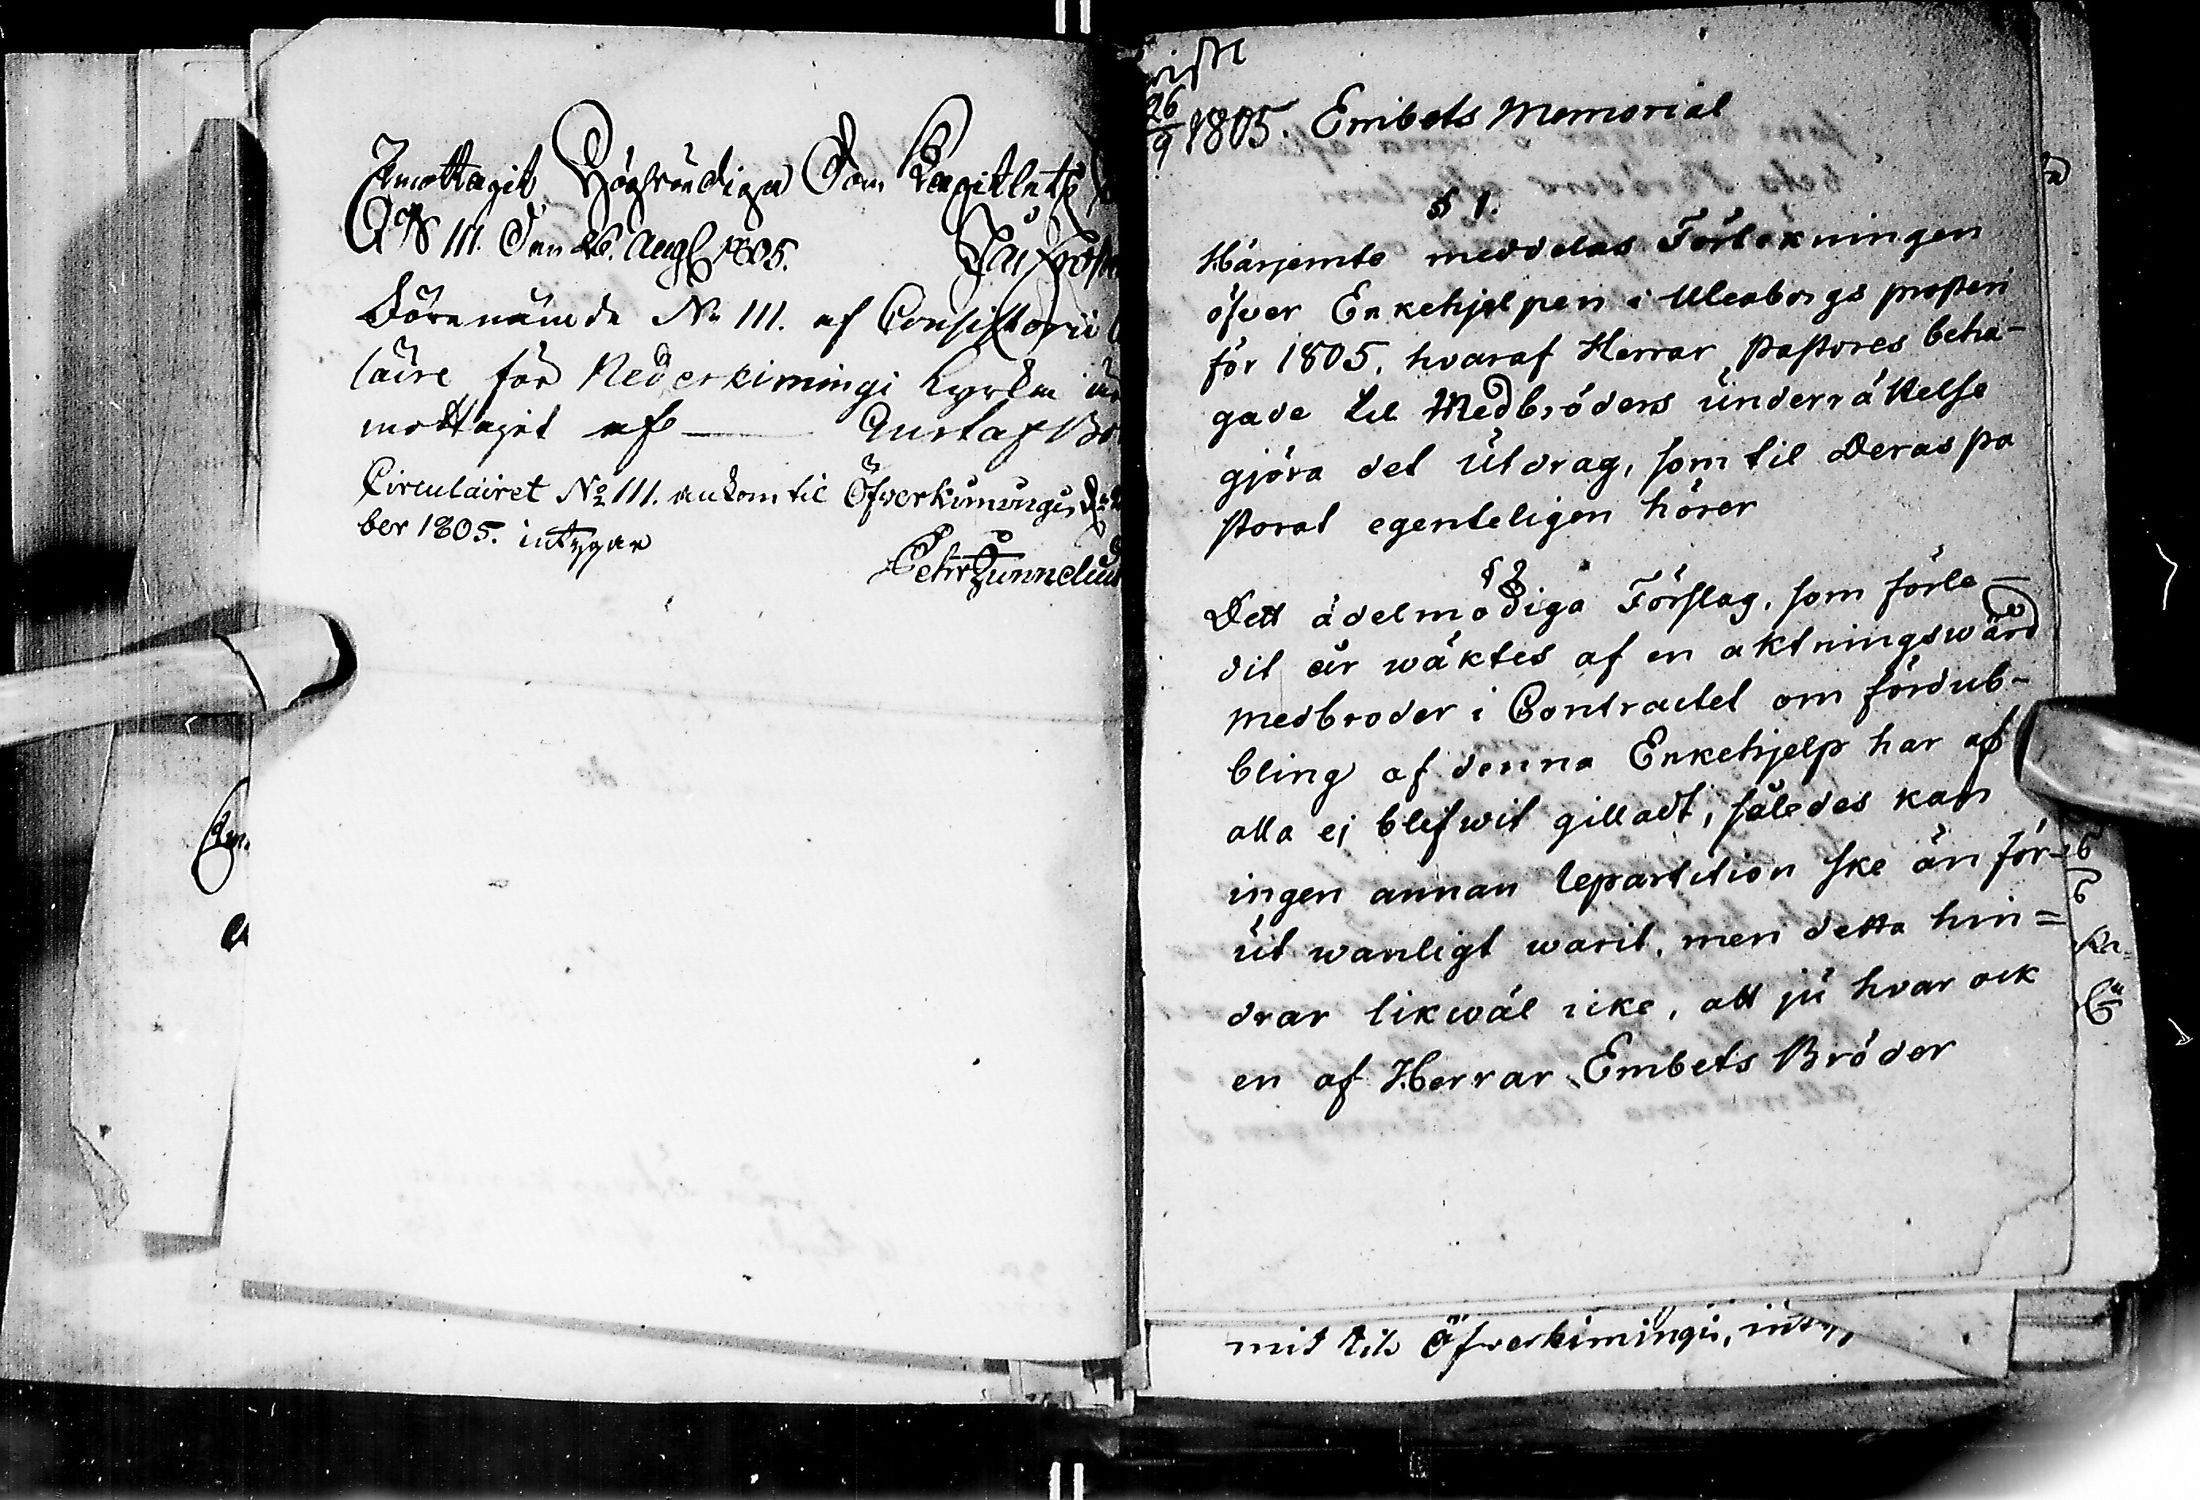 Emottagit Högwördiga Dom Kapitlets
N 111. Den 26. Aug 1805.
Förenämde No 111. af Consistorii
laire för Nederkimingi Kyrka
mottagit afs — Gustaf
Circulairet No 111. ankom til Öfverkimingi
ber 1805. intygar
Pehr Zunnelius
26/9 1805. Embets Memorial
§ 1.
Härjemte meddelas Förtekningen
öfver Enkehjelpen i Uleåborgs prosteri
för 1805, hvaraf Herrar Pastores beha-
gade til Medbröders underrättelse
gjöra det utdrag, som til Deras pa
storat egenteligen hörer
§ 2.
Dett ädelmodiga Förslag, som förle-
dit år wäktes af en aktningswärd
Medbroder i Contractet om fördub-
bling af denna Enkehjelp har af
alla ej blifwit gilladt, således kan
ingen annan repartition ske än för-
ut wanligt warit, men detta hin=
drar likwäl icke, att ju hvar ock
en af Herrar Embets Bröder
mit til Öfverkimingi,